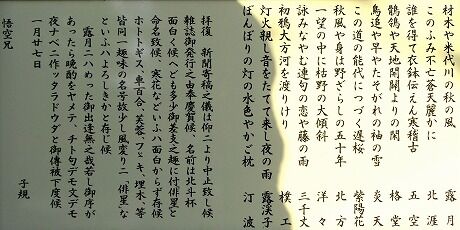 材木や米代川の秋の風　露月
このふみ不亡斎天麗かに　北涯
誰を得て衣鉢伝えん寒稽古　五空
鶺鴒や天地開闢よりの闇　格堂
鳥追や早やたそがれの袖の雪　炎天
この道の能代につづく遅桜　紫陽花
秋風や身は野ざらしの五十年　北方
一望の中に枯野の大傾斜　洋々
詠みなやむ連句の恋や藤の雨　三千丈
初鴉大方河を渡りけり　樸工
灯火親し音をたてて来し夜の雨　露渓子
ぼんぼりの灯の水色やかご枕　汀波
拝復　新聞寄稿之儀は仰ニより中止致し候
雑誌御発行之由奉慶賀候、名前は北斗杯
面白く候へども多少御差支之趣に付「俳星」と
命名致候、寒花などいへハ面白からず存候
ホトトギス、車百合、芙蓉、フェキ、埋木、等
皆同一趣味の名号故少し風変り二「俳星」な
といふハよろしきかと存じ候
露月ニハめった御出逢無之哉若し御序が
あったら晩酌をヤメテ、チト句デモ文デモ
夜ナベニ作ッタラドウダと御傳被下度候
一月廿七日
子規
悟空兄